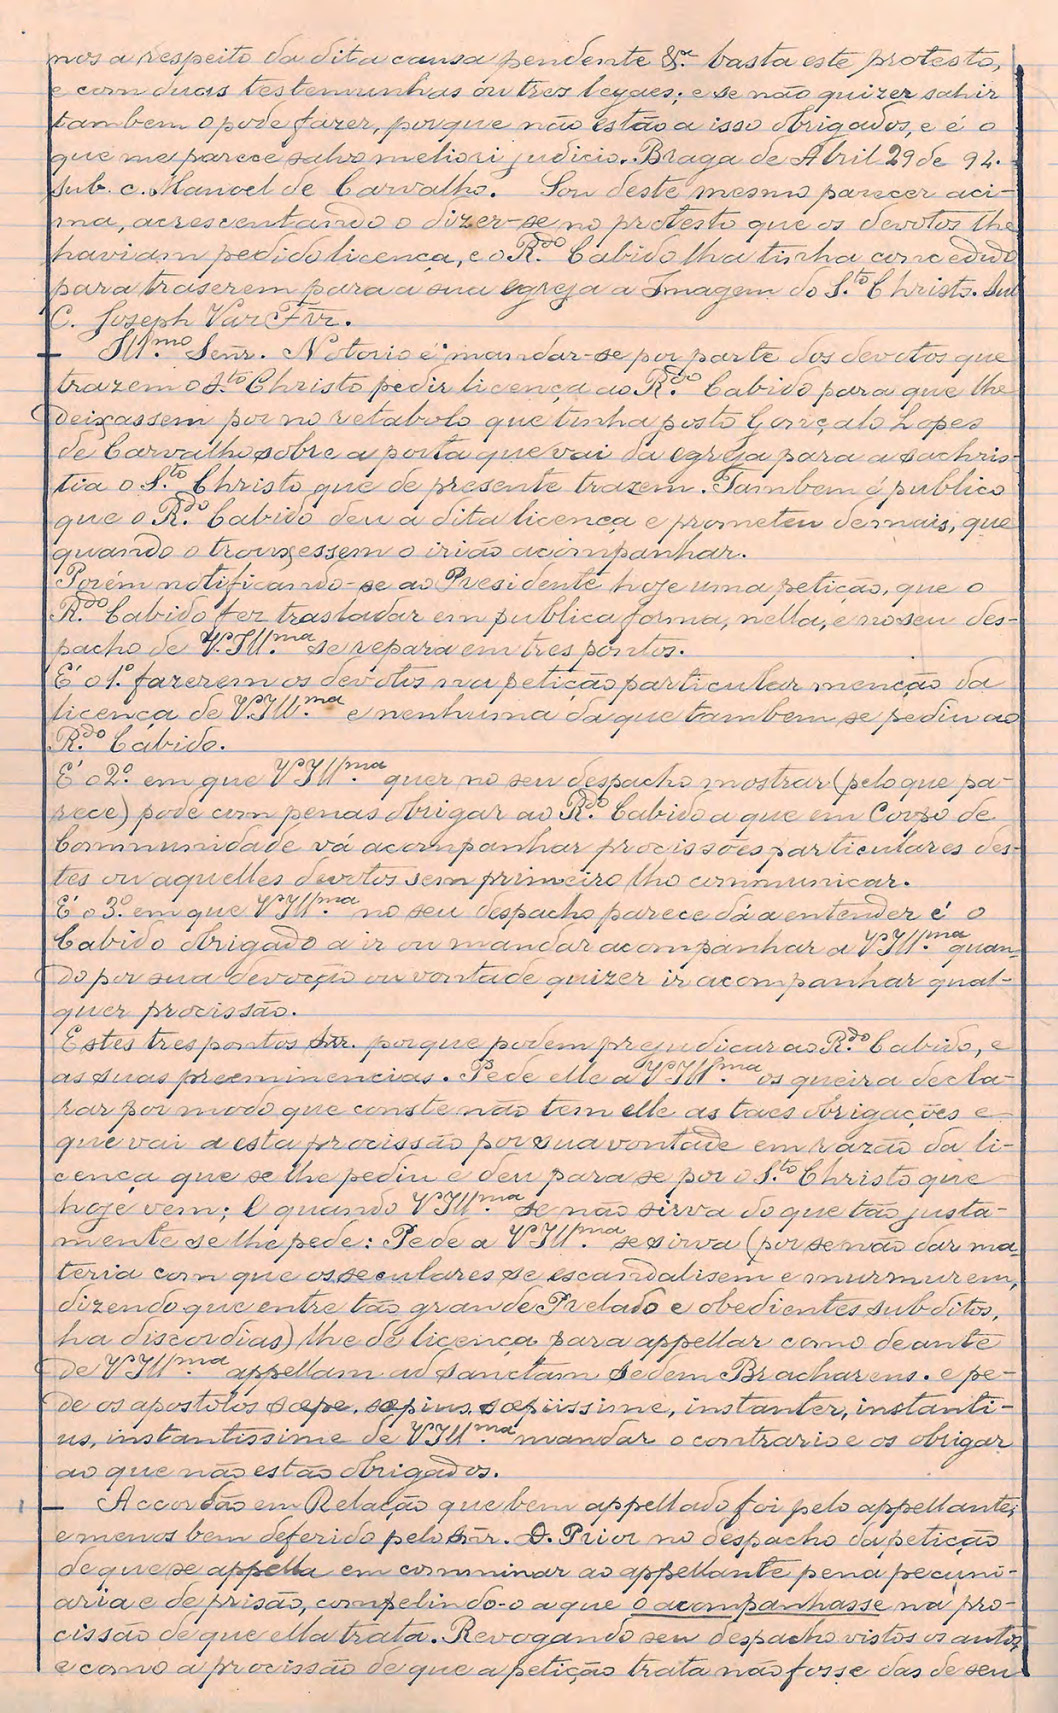 nos a respeito da dita causa pendente &.ª basta este protesto,
e com duas testemunhas ou tres legaes; e se não quizer sahir
tambem o pode fazer, porque não estão a isso obrigados, e é o
que me parece salvo meliori judicio. Braga de Abril 29 de 94.
Sub. c. Manoel de Carvalho. Sou deste mesmo parecer aci-
ma, acrescentando o dizer-se no protesto que os devotos lhe
haviam pedido licença, e o R.do Cabido lha tinha concedido
para traserem para a sua egreja a Imagem do S.to Christo. Sub
C. Joseph Vaz Frz.
— Ill.mo Senr. Notorio é mandar-se por parte dos devotos que
trazem o S.to Christo pedir licença ao R.do Cabido para que lhe
deixassem por no retabolo que tinha posto Gonçalo Lopes
de Carvalho sobre a porta que vai da egreja para a sachris-
tia o S.to Christo que de presente trazem. Tambem é publico
que o R.do Cabido deu a dita licença e prometeu demais, que
quando o trouxessem o irião acompanhar.
Porém notificando-se ao Presidente hoje uma petição, que o
R.do Cabido fez trasladar em publica forma, nella, e no seu des-
pacho de V. Ill.ma se repara em tres pontos.
É o 1.º fazerem os devotos na petição particular menção da
licença de V Ill.ma e nenhuma da que tambem se pediu ao
R.do Cabido.
É o 2.º em que V Ill.ma quer no seu despacho mostrar (pelo que pa-
rece) pode com penas obrigar ao R.do Cabido a que em Corpo de
Communidade vá acompanhar procissões particulares des-
tes ou aquelles devotos sem primeiro lho communicar.
É o 3.º em que V Ill.ma no seu despacho parece dá a entender é o
Cabido obrigado a ir ou mandar acompanhar a V Ill.ma quan-
do por sua devoção ou vontade quizer ir acompanhar qual-
quer procissão.
Estes tres pontos Snr. porque podem prejudicar ao R.do Cabido, e
as suas preeminencias. Pede elle a V Ill.ma os queira decla-
rar por modo que conste não tem elle as taes obrigações e
que vai a esta procissão por sua vontade em razão da li-
cença que se lhe pediu e deu para se por o S.to Christo que
hoje vem; E quando V Ill.ma se não sirva do que tão justa-
mente se lhe pede: Pede a V Ill.ma se sirva (por se não dar ma-
teria com que os seculares se escandalisem e murmurem,
dizendo que entre tão grande Prelado e obedientes subditos,
ha discordias) lhe dê licença para appellar como de ante
de V Ill.ma appellam ad sanctam sedem Bracharens. e pe-
de os apostolos sæpe, sæpius, sæpiissime, instanter, instanti-
us, instantissime de V Ill.ma mandar o contrario e os obrigar
ao que não estão obrigados.
— Accordão em Relação que bem appellado foi pelo appellante,
e menos bem deferido pelo Snr. D. Prior no despacho da petição
de que se appella em comminar ao appellante pena pecuni-
aria e de prisão, compelindo-o a que o acompanhasse na pro-
cissão de que ella trata. Revogando seu despacho vistos os autos,
e como a procissão de que a petição trata não fosse das de seu